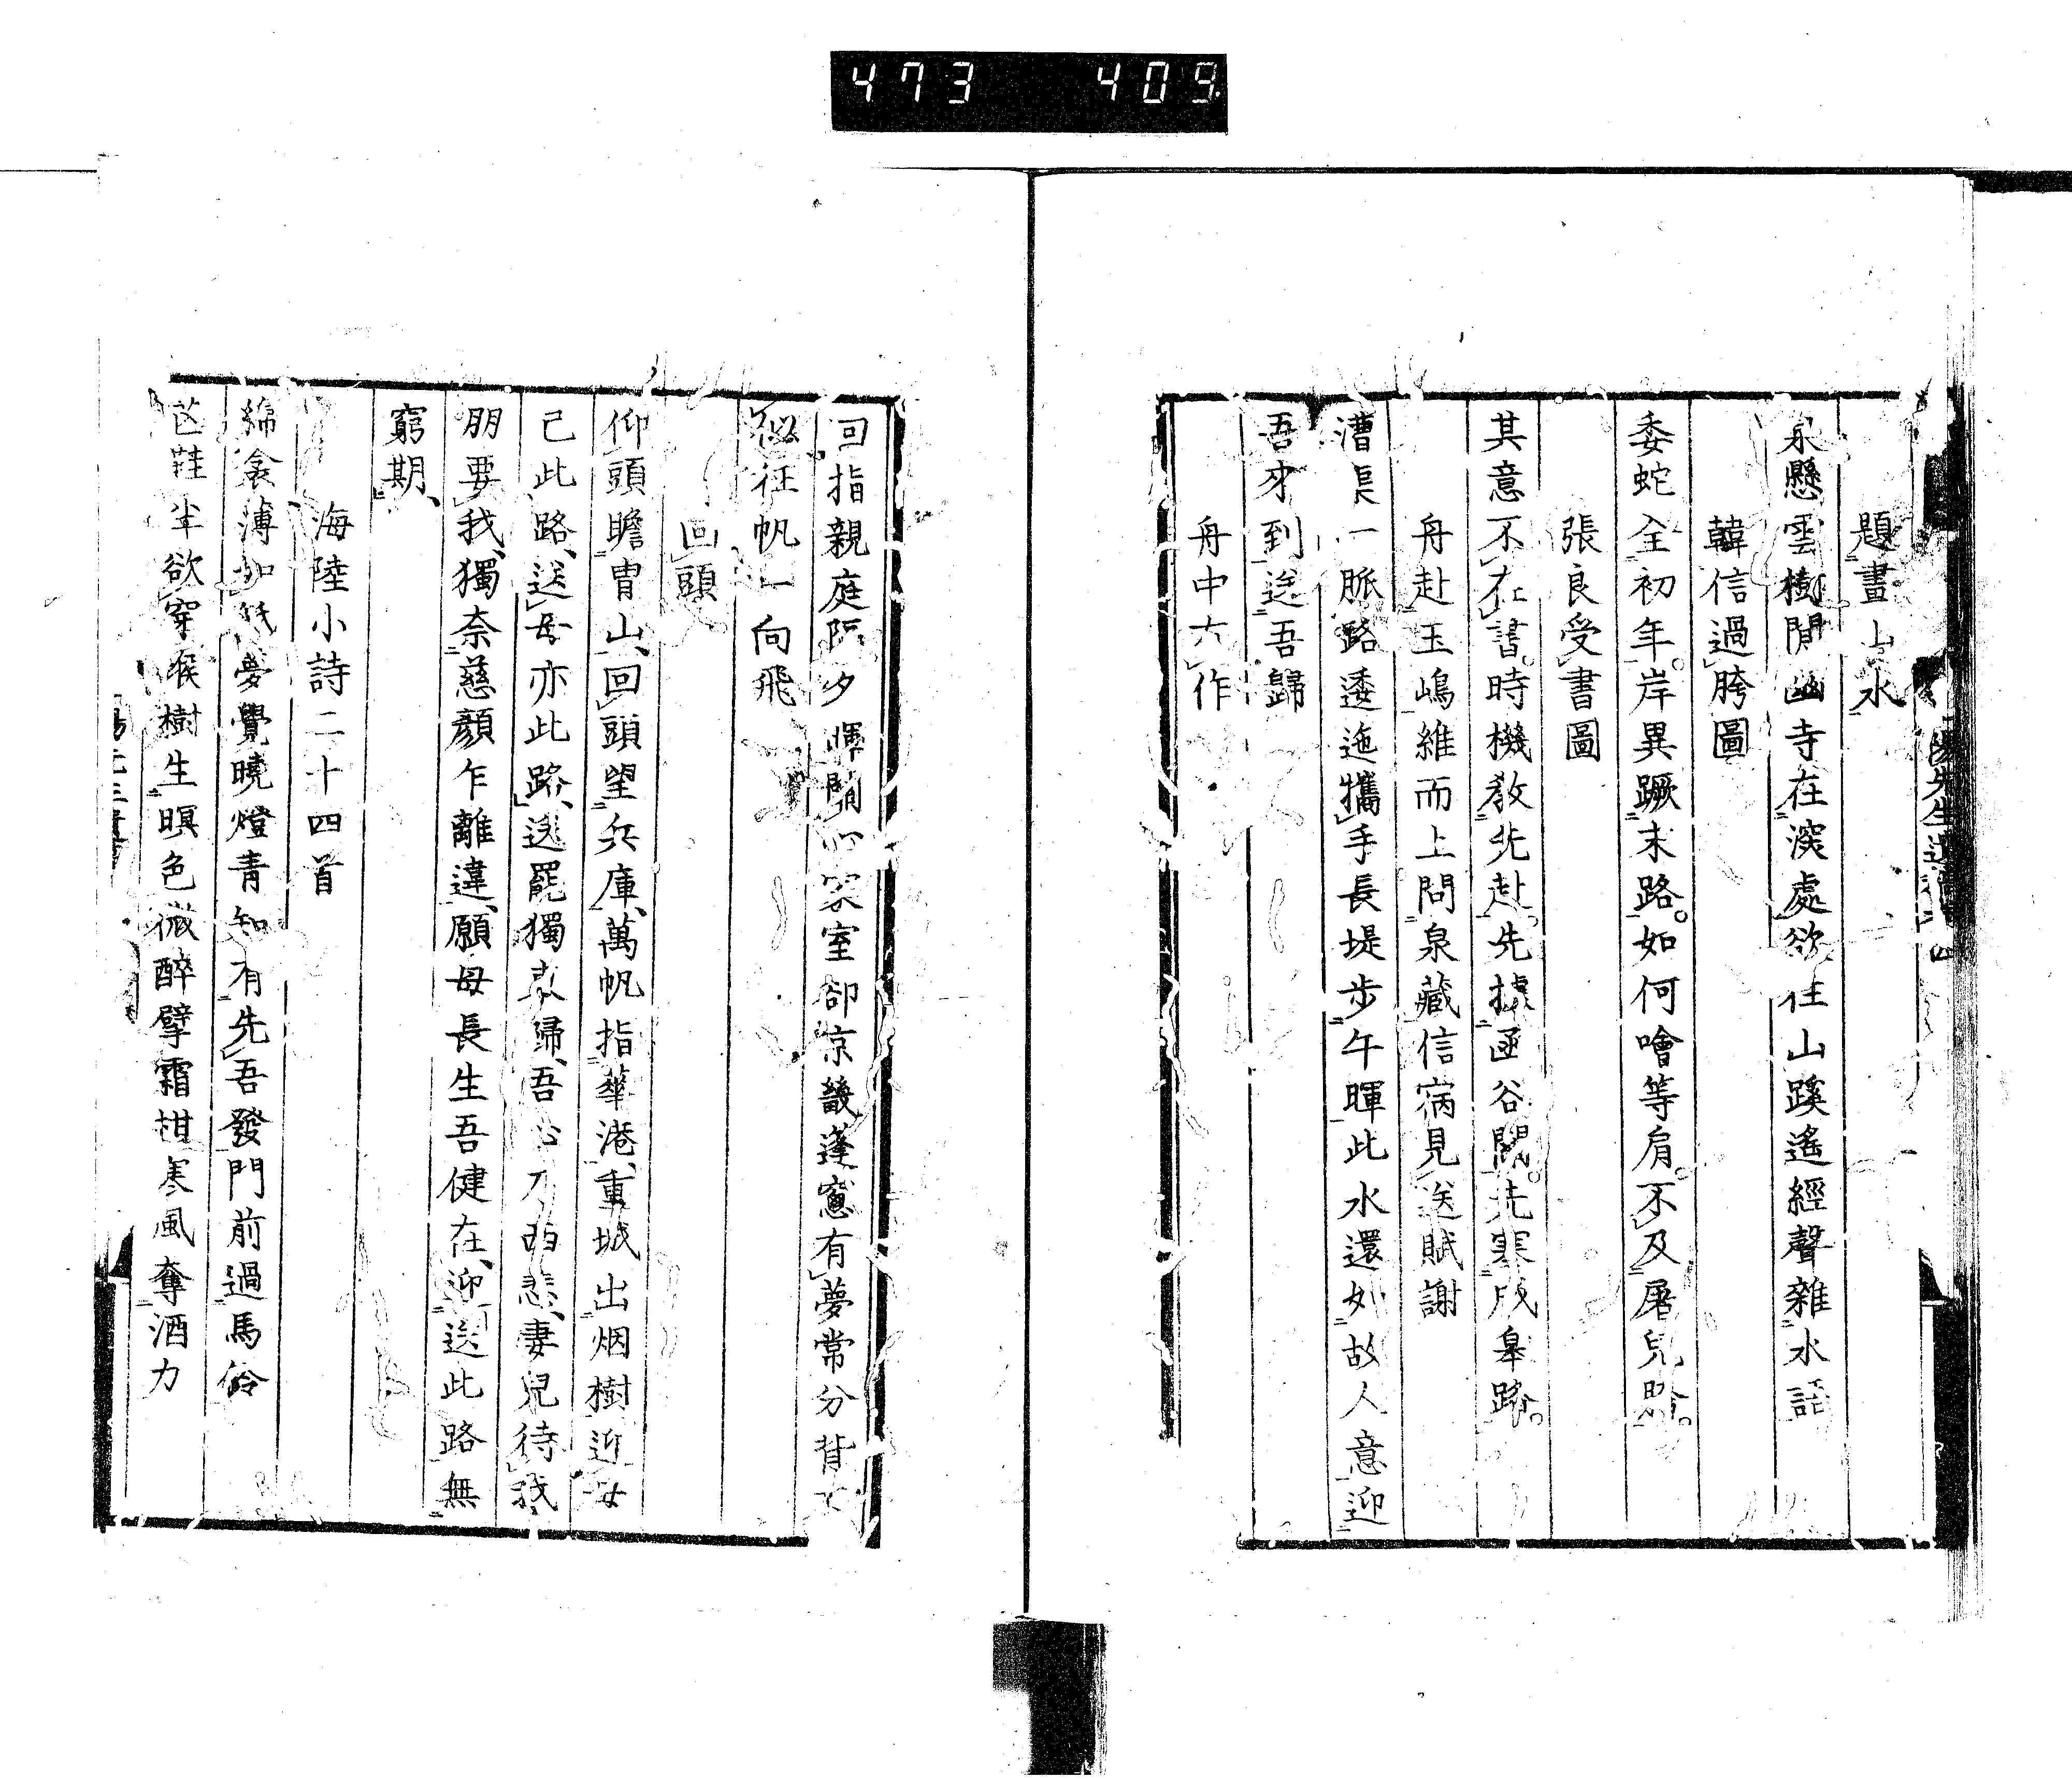 473 409
題畫山水
泉懸雲樹間幽寺在深處欲往山蹊遙經聲雜水語
韓信過胯圖
委蛇全初年。岸異蹶末路。如何噲等肩。不及屠兒胯。
張良受書圖
其意不在書。時機教先赴。先據函谷關。先塞成皋路。
舟赴玉嶋維而上問泉藏信病見送賦謝
漕渠一脈路逶迤攜手長堤步午暉此水還如故人意迎
吾來到送吾歸
舟中六作
回指親庭阻夕暉關心家室卻京畿蓬窓有夢常分背
征帆一向飛
回頭
仰頭瞻冑山、回頭望兵庫、萬帆指華港、重城出烟樹近母
己此路、送母亦此路、送罷獨東歸、吾心乃西悲、妻兒待我
朋要我、獨奈慈顏乍離違、願母長生吾健在、迎送此路無
窮期、
海陸小詩二十四首
綿衾薄如紙夢覺曉燈青知有先吾發門前過馬鈴
芒鞋半欲穿堠樹生暝色微醉擘霜柑寒風奪酒力